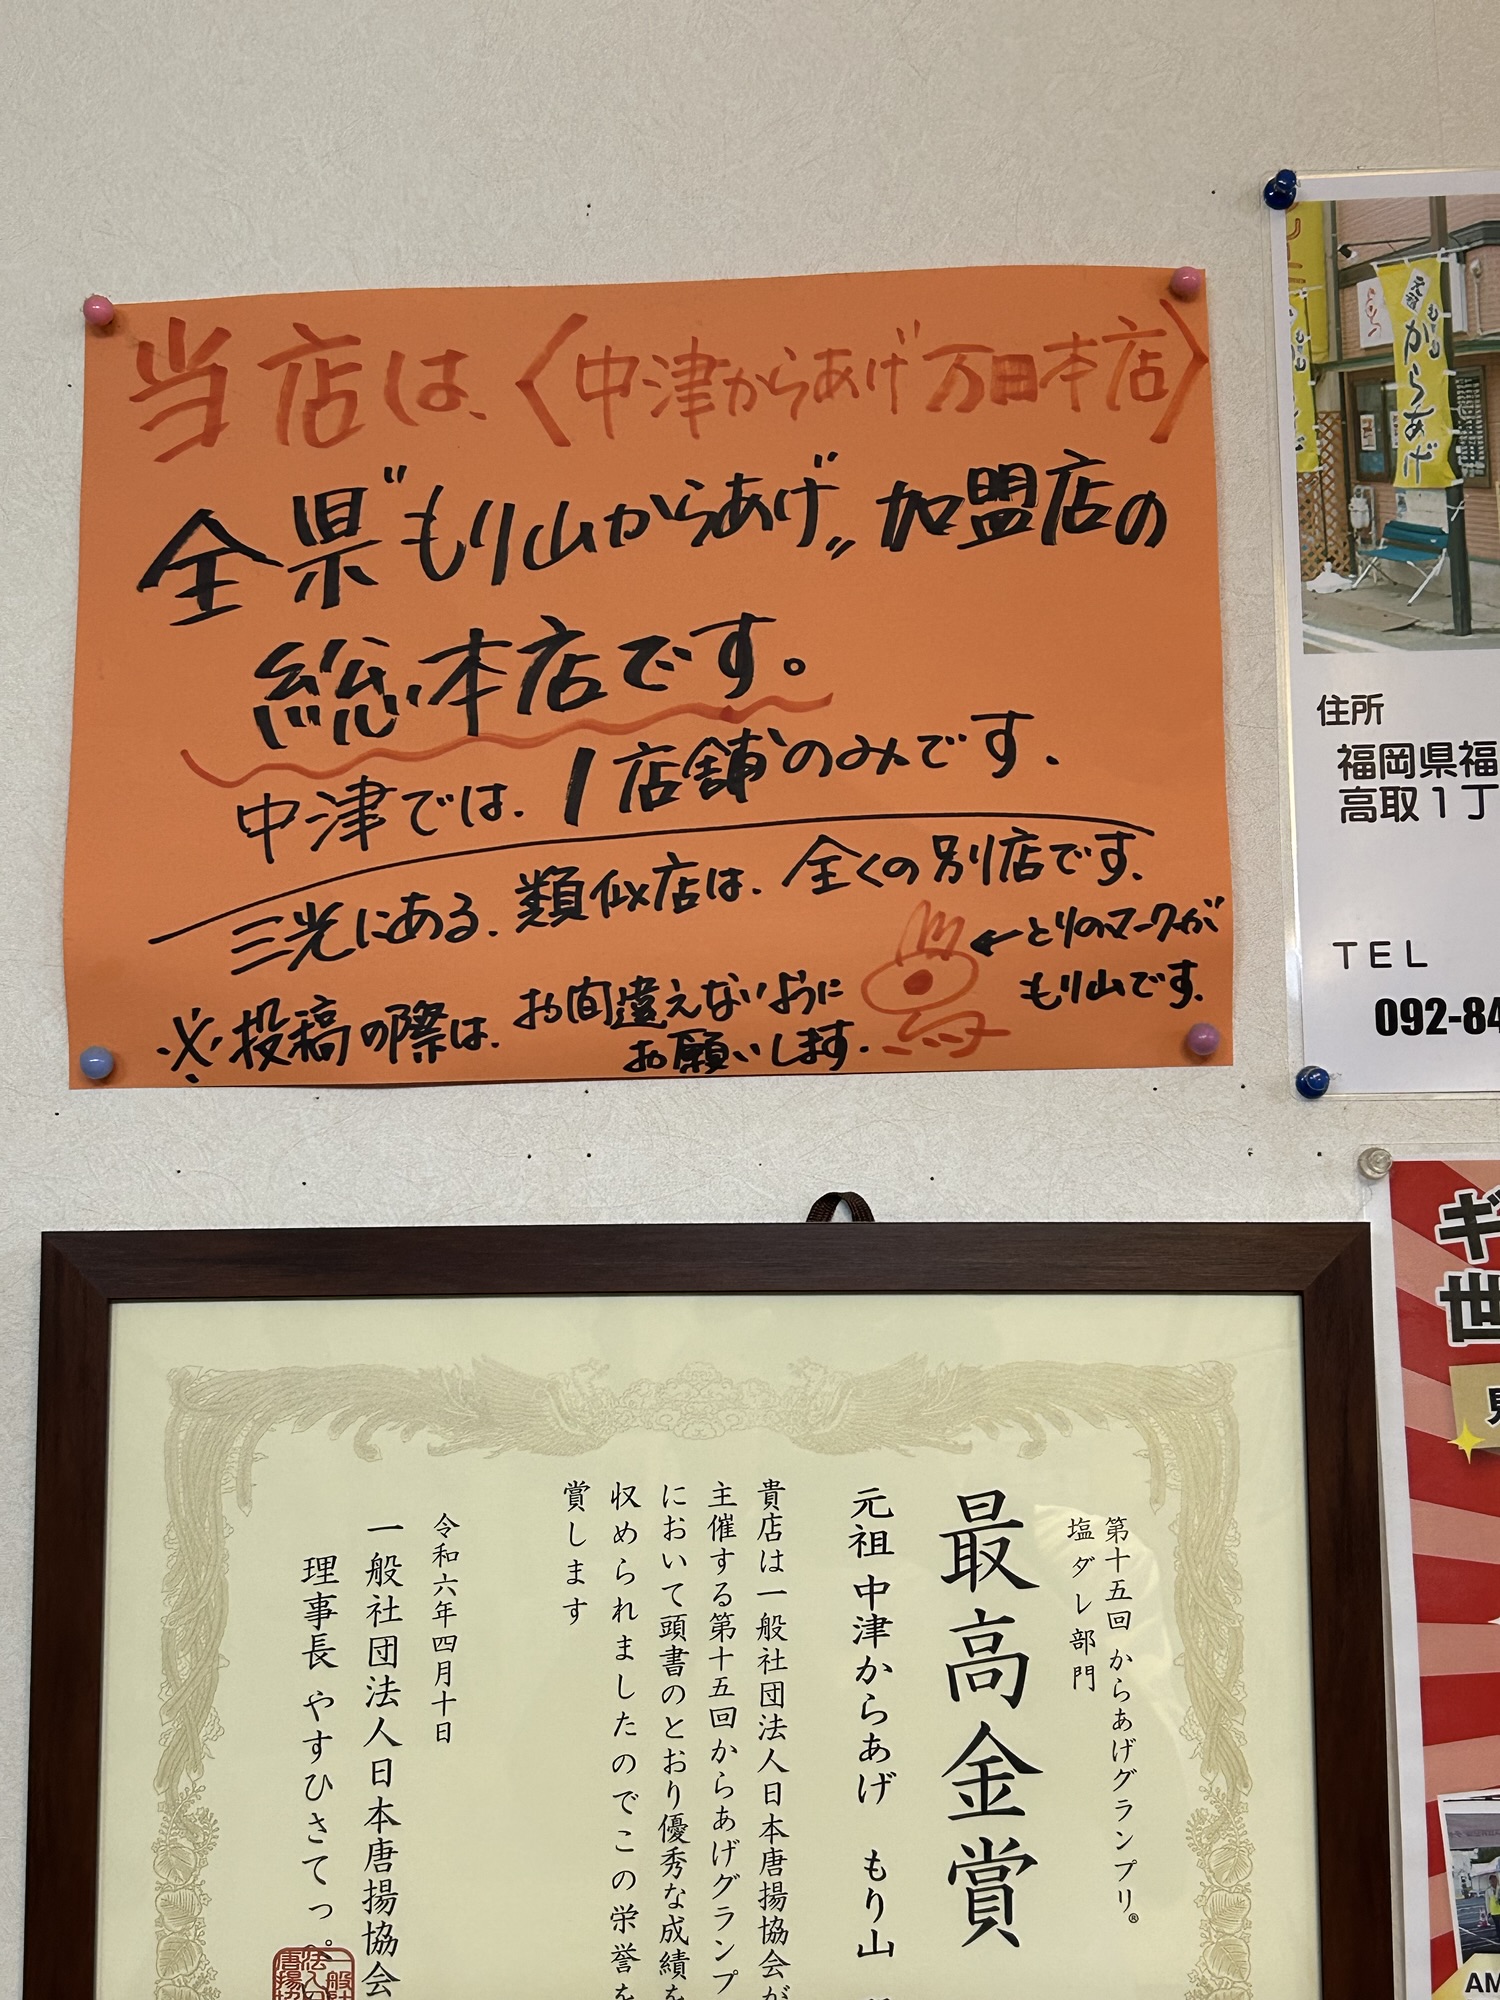 当店は、〈中津からあげ万田本店〉
全県“もり山からあげ”加盟店の
総本店です。
中津では、1店舗のみです、
三光にある、類似店は、全くの別店です、
※投稿の際は、お間違えないように
お願いします、
←とりのマークが
もり山です、
元祖
もり山
からあげ
住所
福岡県福
高取1丁
TEL
092-84
第十五回 からあげグランプリ®
塩ダレ部門
最高金賞
元祖 中津からあげ もり山
貴店は一般社団法人日本唐揚協会が
主催する第十五回からあげグランプ
において頭書のとおり優秀な成績を
収められましたのでこの栄誉を
賞します
令和六年四月十日
一般社団法人日本唐揚協会
理事長 やすひさてっぺい
ギ
世
AM